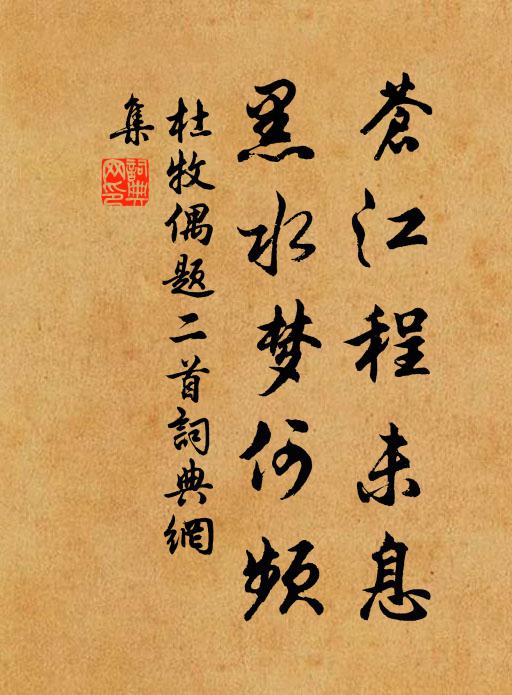 蒼江程未息
黑水梦何頻
杜牧偶题二首詞典網
集
詞典網印